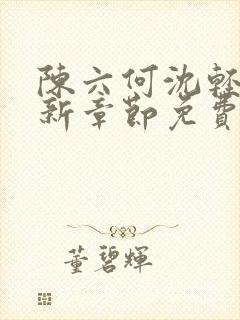 陳六何沈輕
新章節免費
董碧輝